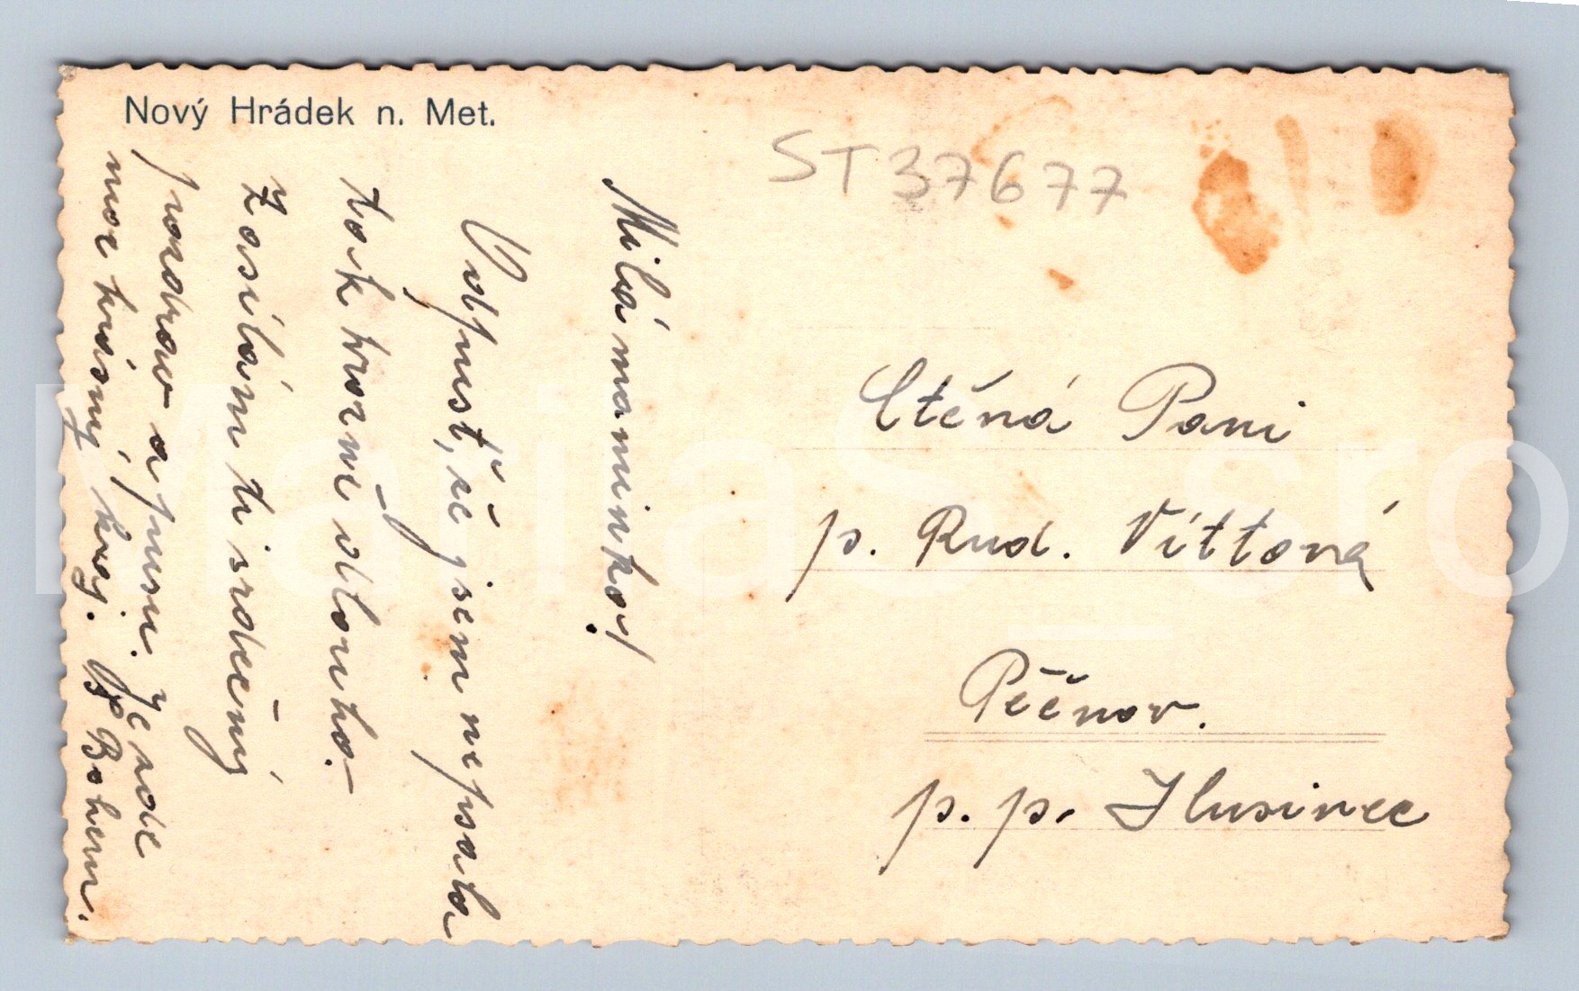 Nový Hrádek n. Met.
ST37677
Milá maminko!
Odpusť, že jsem nepsala
tak hrozně dlouho.-
Zasílám ti srdečný
pozdrav a pusu. Je zde
moc krásný kraj. Bohum.
Ctěná Pani
p. Rud. Víttová
Pěčnov.
p. p. Husinec
MaTiaS_sro